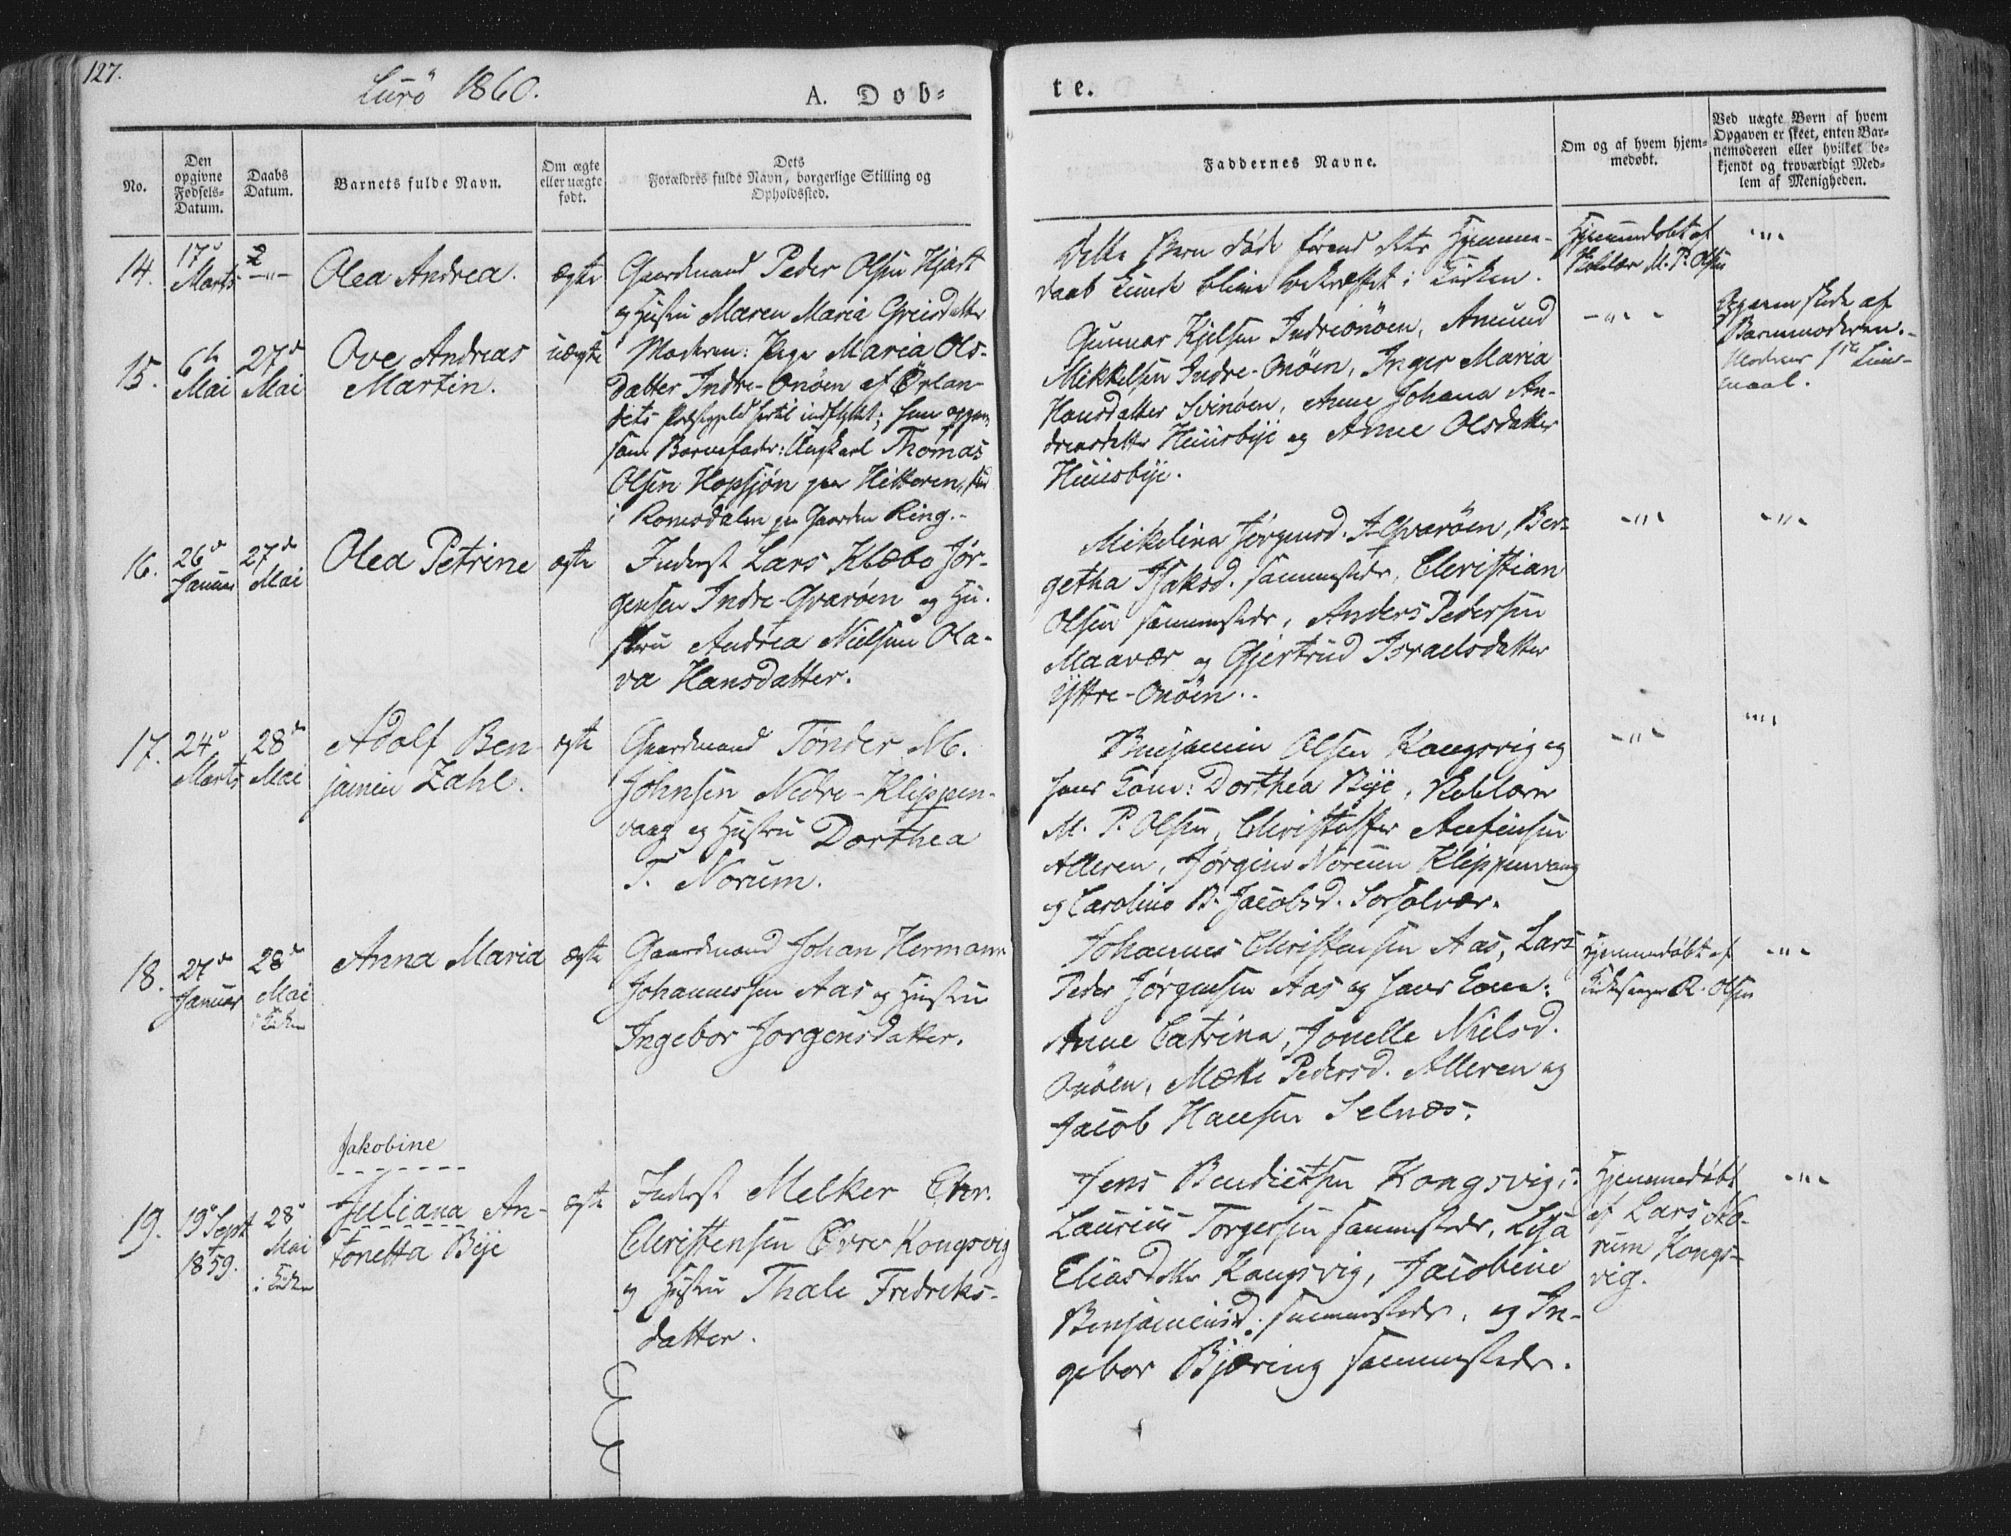 127.
Lurö 1860.
A. Døb-
te.
No.
Den opgivne Fødsels-Datum.
Daabs Datum.
Barnets fulde Navn.
Om ægte eller uægte født.
Dets Forældres fulde Navn, borgerlige Stilling og Opholdssted.
Faddernes Navne.
Om og af hvem hjem-
medøbt.
Ved uægte Børn af hvem
Opgaven er skeet, enten Bar-
nemoderen eller hvilket be-
kjendt og troværdigt Med-
lem af Menigheden.
14.
17
Marts
Olea Andrea.
ægte
Gaardmand Peder Olsen Hjart
og Hustru Maren Maria Greisdatter
Dette Barn døde førend dets Hjemme-
daab kunde blive bekræftet i Kirken.
Hjemmedøbt af
Skolelær M. P. Olsen
15.
6te
Mai
27d
Mai
Ove Andreas
Martin.
uægte
Moderen: Pige Maria Ols-
datter Indre-Onöen af Ørlan-
dets Præstegjeld hertil indflyttet;
som Barnefader: Ungkarl Thomas
Olsen Hopsjøn paa Hitteren,
i Romsdalen paa Gaarden Ring.
Gunnar Kjelsen Indreonöen, Amund
Mikkelsen Indre-Onöen, Inger Maria
Hansdatter Svinöen, Anne Johana An-
dreasdatter Huusbye og Anne Olsdatter
Huusbye.
Opgaven skede af
Barnemoderen.
Moderens 1ste Leier-
maal.
16.
26d
Januar
27d
Mai
Olea Petrine
ægte
Inderst Lars Klæbo Jör-
gensen Indre-Qvaröen og Hu-
stru Andrea Nielsine Ola-
va Hansdatter.
Mikelina Jørgensd. I-Qvaröen, Ber-
getha Isaksd. sammesteds, Christian
Olsen sammesteds, Anders Pedersen
Maavær og Gjertrud Israelsdatter
Yttre-Onöen.
17.
24
Marts
28d
Mai
Adolf Ben-
jamin Zahl.
ægte
Gaardmand Tönder M.
Johnsen Nedre-Klippen-
vaag og Hustru Dorthea
T. Norum.
Benjamin Olsen Kongsvig og
hans Kone: Dorthea Bye, Skolelærer
M. P. Olsen, Christoffer Anfinsen
Alleren, Jørgine Norum Klippenvaag
og Caroline B. Jacobsd. Sorsolvær.
18.
27d
Januar
28d
Mai
i Kirken
Anna Maria
ægte
Gaardmand Johan Hermann
Johannessen Aas og Hustru
Ingebor Jørgensdatter.
Johannes Christensen Aas, Lars
Peder Jørgensen Aas og hans Kone:
Anne Catrina, Jonelle Nielsd.
Onöen, Mette Pedersd. Alleren og
Jacob Hansen Selnæs.
Hjemmedøbt af
Kirkesanger R. Olsen
19.
19 Sept
1859.
28
Mai
i Kirken
Jakobine
Juliana An-
tonetta Bye
ægte
Inderst Melker Chr.
Christensen Övre Kongsvig
og Hustru Thale Fredriks-
datter.
Jens Bendictsen Kongsvig,
Laurius Torgersen sammesteds, Lisa
Eliasdatter Kongsvig, Jacobine
Benjaminsd. sammesteds, og In-
gebor Bjæring sammesteds.
Hjemmedøbt
af Lars No-
rum Kongs-
vig.